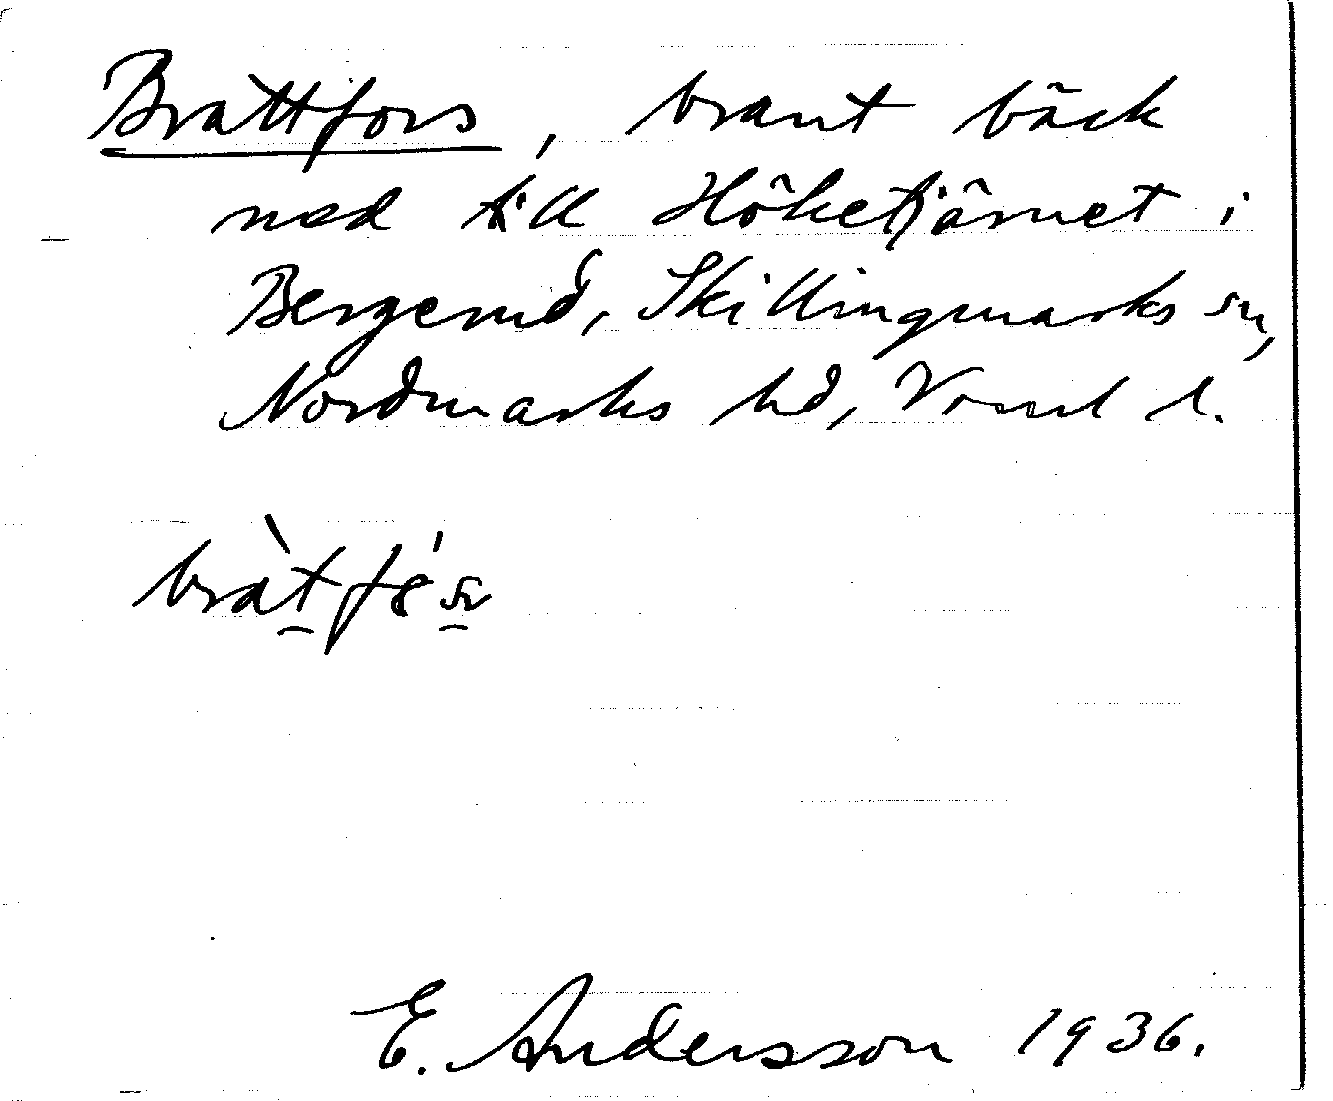 Brattfors, brant bäck
ned till Höketjärnet i
Bergerud, Skillingmarks sn,
Nordmarks hd, Vrml l.
E. Andersson 1936.